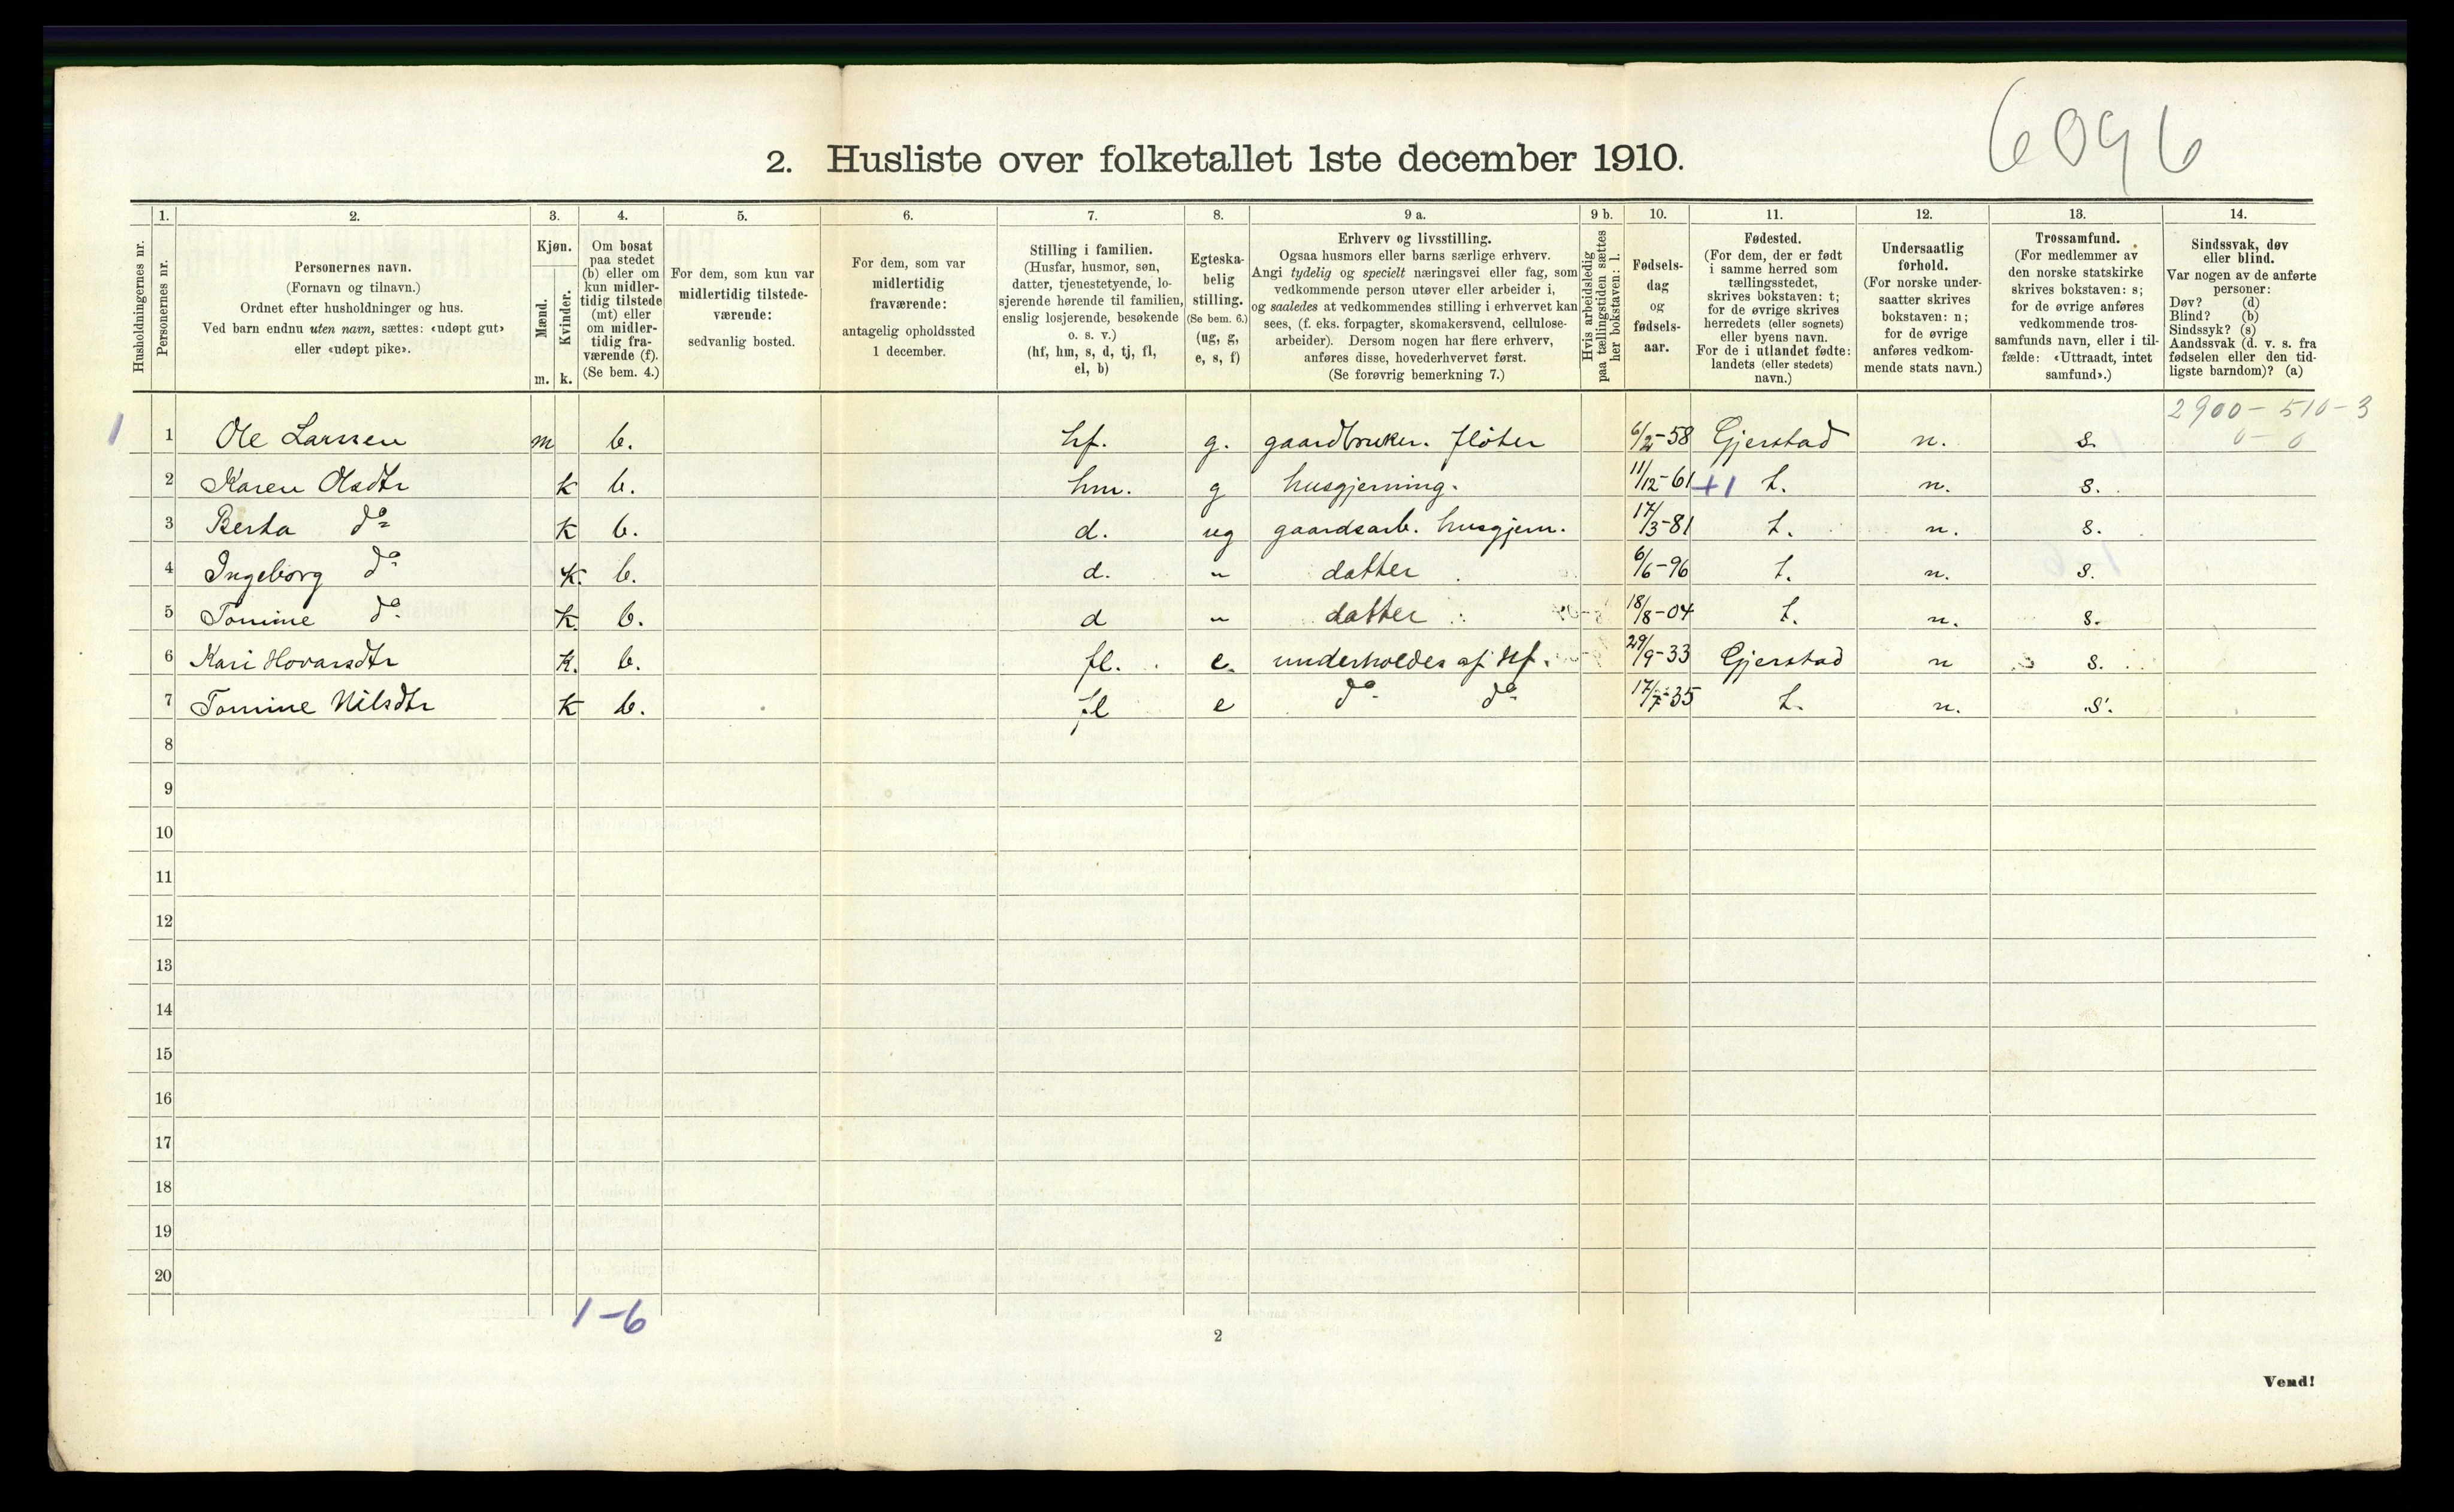 6096
2. Husliste over folketallet 1ste december 1910.
Husholdningernes nr.
1.
Personernes nr.
2.
Personernes navn.
(Fornavn og tilnavn.)
Ordnet efter husholdninger og hus.
Ved barn endnu uten navn, sættes: «udøpt gut»
eller «udøpt pike».
3.
Kjøn.
Mænd.
m.
Kvinder.
k.
4.
Om bosat
paa stedet
(b) eller om
kun midler-
tidig tilstede
(mt) eller
om midler-
tidig fra-
værende (f).
(Se bem. 4.)
5.
For dem, som kun var
midlertidig tilstede-
værende:
sedvanlig bosted.
6.
For dem, som var
midlertidig
fraværende:
antagelig opholdssted
1 december.
7.
Stilling i familien.
(Husfar, husmor, søn,
datter, tjenestetyende, lo-
sjerende hørende til familien,
enslig losjerende, besøkende
o. s. v.)
(hf, hm, s, d, tj, fl,
el, b)
8.
Egteska-
belig
stilling.
(Se bem. 6.)
(ug, g,
e, s, f)
9 a.
Erhverv og livsstilling.
Ogsaa husmors eller barns særlige erhverv.
Angi tydelig og specielt næringsvei eller fag, som
vedkommende person utøver eller arbeider i,
og saaledes at vedkommendes stilling i erhvervet kan
sees, (f. eks. forpagter, skomakersvend, cellulose-
arbeider). Dersom nogen har flere erhverv,
anføres disse, hovederhvervet først.
(Se forøvrig bemerkning 7.)
9 b.
Hvis arbeidsledig
paa tællingstiden sættes
her bokstaven: l.
10.
Fødsels-
dag
og
fødsels-
aar.
11.
Fødested.
(For dem, der er født
i samme herred som
tællingsstedet,
skrives bokstaven: t;
for de øvrige skrives
herredets (eller sognets)
eller byens navn.
For de i utlandet fødte:
landets (eller stedets)
navn.)
12.
Undersaatlig
forhold.
(For norske under-
saatter skrives
bokstaven: n;
for de øvrige
anføres vedkom-
mende stats navn.)
13.
Trossamfund.
(For medlemmer av
den norske statskirke
skrives bokstaven: s;
for de øvrige anføres
vedkommende tros-
samfunds navn, eller i til-
fælde: «Uttraadt, intet
samfund».)
14.
Sindssvak, døv
eller blind.
Var nogen av de anførte
personer:
Døv? (d)
Blind? (b)
Sindssyk? (s)
Aandssvak (d. v. s. fra
fødselen eller den tid-
ligste barndom)? (a)
2900-510-3
0-0
1 1 Ole Larssen m b. hf. g. gaardbruker. fløter 6/2-58 Gjerstad n. s.
2 Karen Olsdtr k b. hm. g husgjerning. 11/12-61 +1 t. n. s.
3 Berta do k b. d. ug gaardsarb. husgjern. 17/3-81 t. n. s.
4 Ingeborg do k. b. d. " datter 6/6-96 t. n. s.
5 Tomine do k. b. d " datter 18/8-04 t. n. s.
6 Kari Hovarsdtr k. b. fl. e. underholdes af hf. 29/9-33 Gjerstad n s.
7 Tomine Nilsdtr k b. fl e do do 17/7-35 t. n. s.
8
9
10
11
12
13
14
15
16
17
18
19
20
1-6
2
Vend!